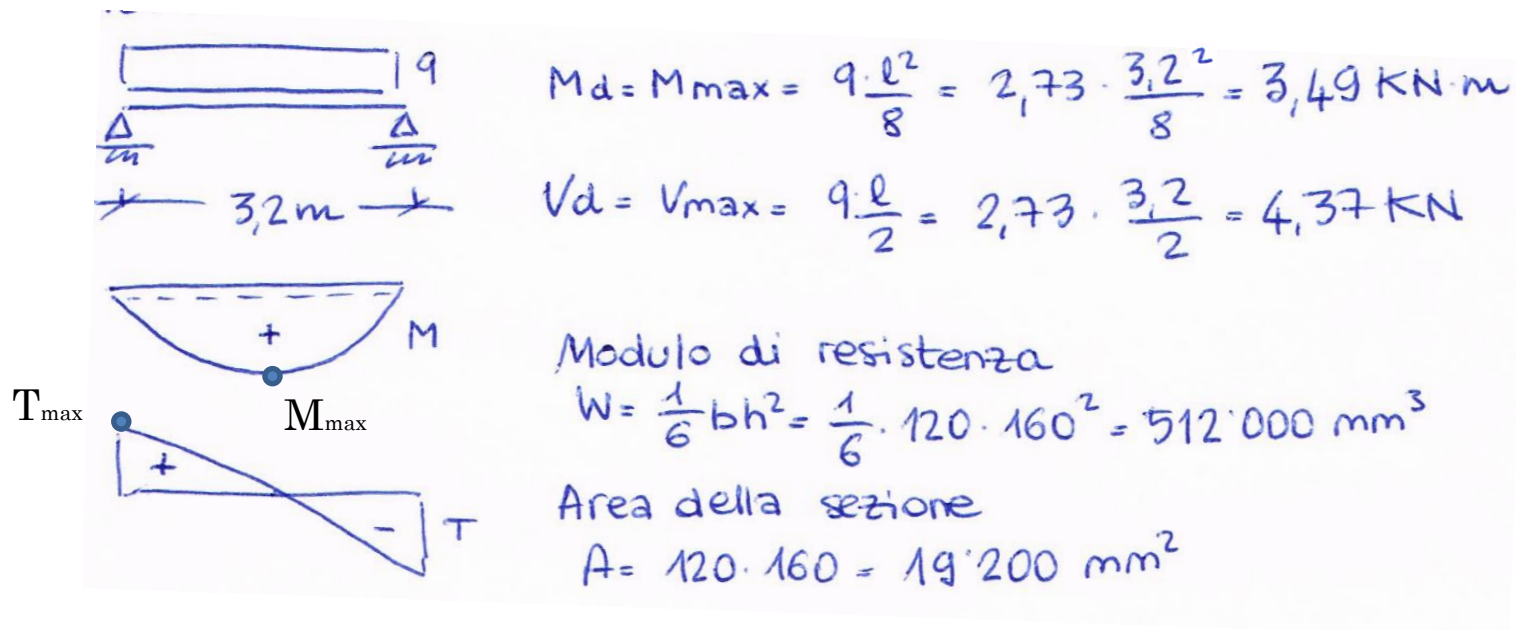 q
Md = Mmax = q·l²/8 = 2,73 · 3,2²/8 = 3,49 KN·m
Vd = Vmax = q·l/2 = 2,73 · 3,2/2 = 4,37 KN
3,2m
+
M
Mmax
Tmax
+
-
T
Modulo di resistenza
W = 1/6 bh² = 1/6 · 120 · 160² = 512'000 mm³
Area della sezione
A = 120 · 160 = 19'200 mm²